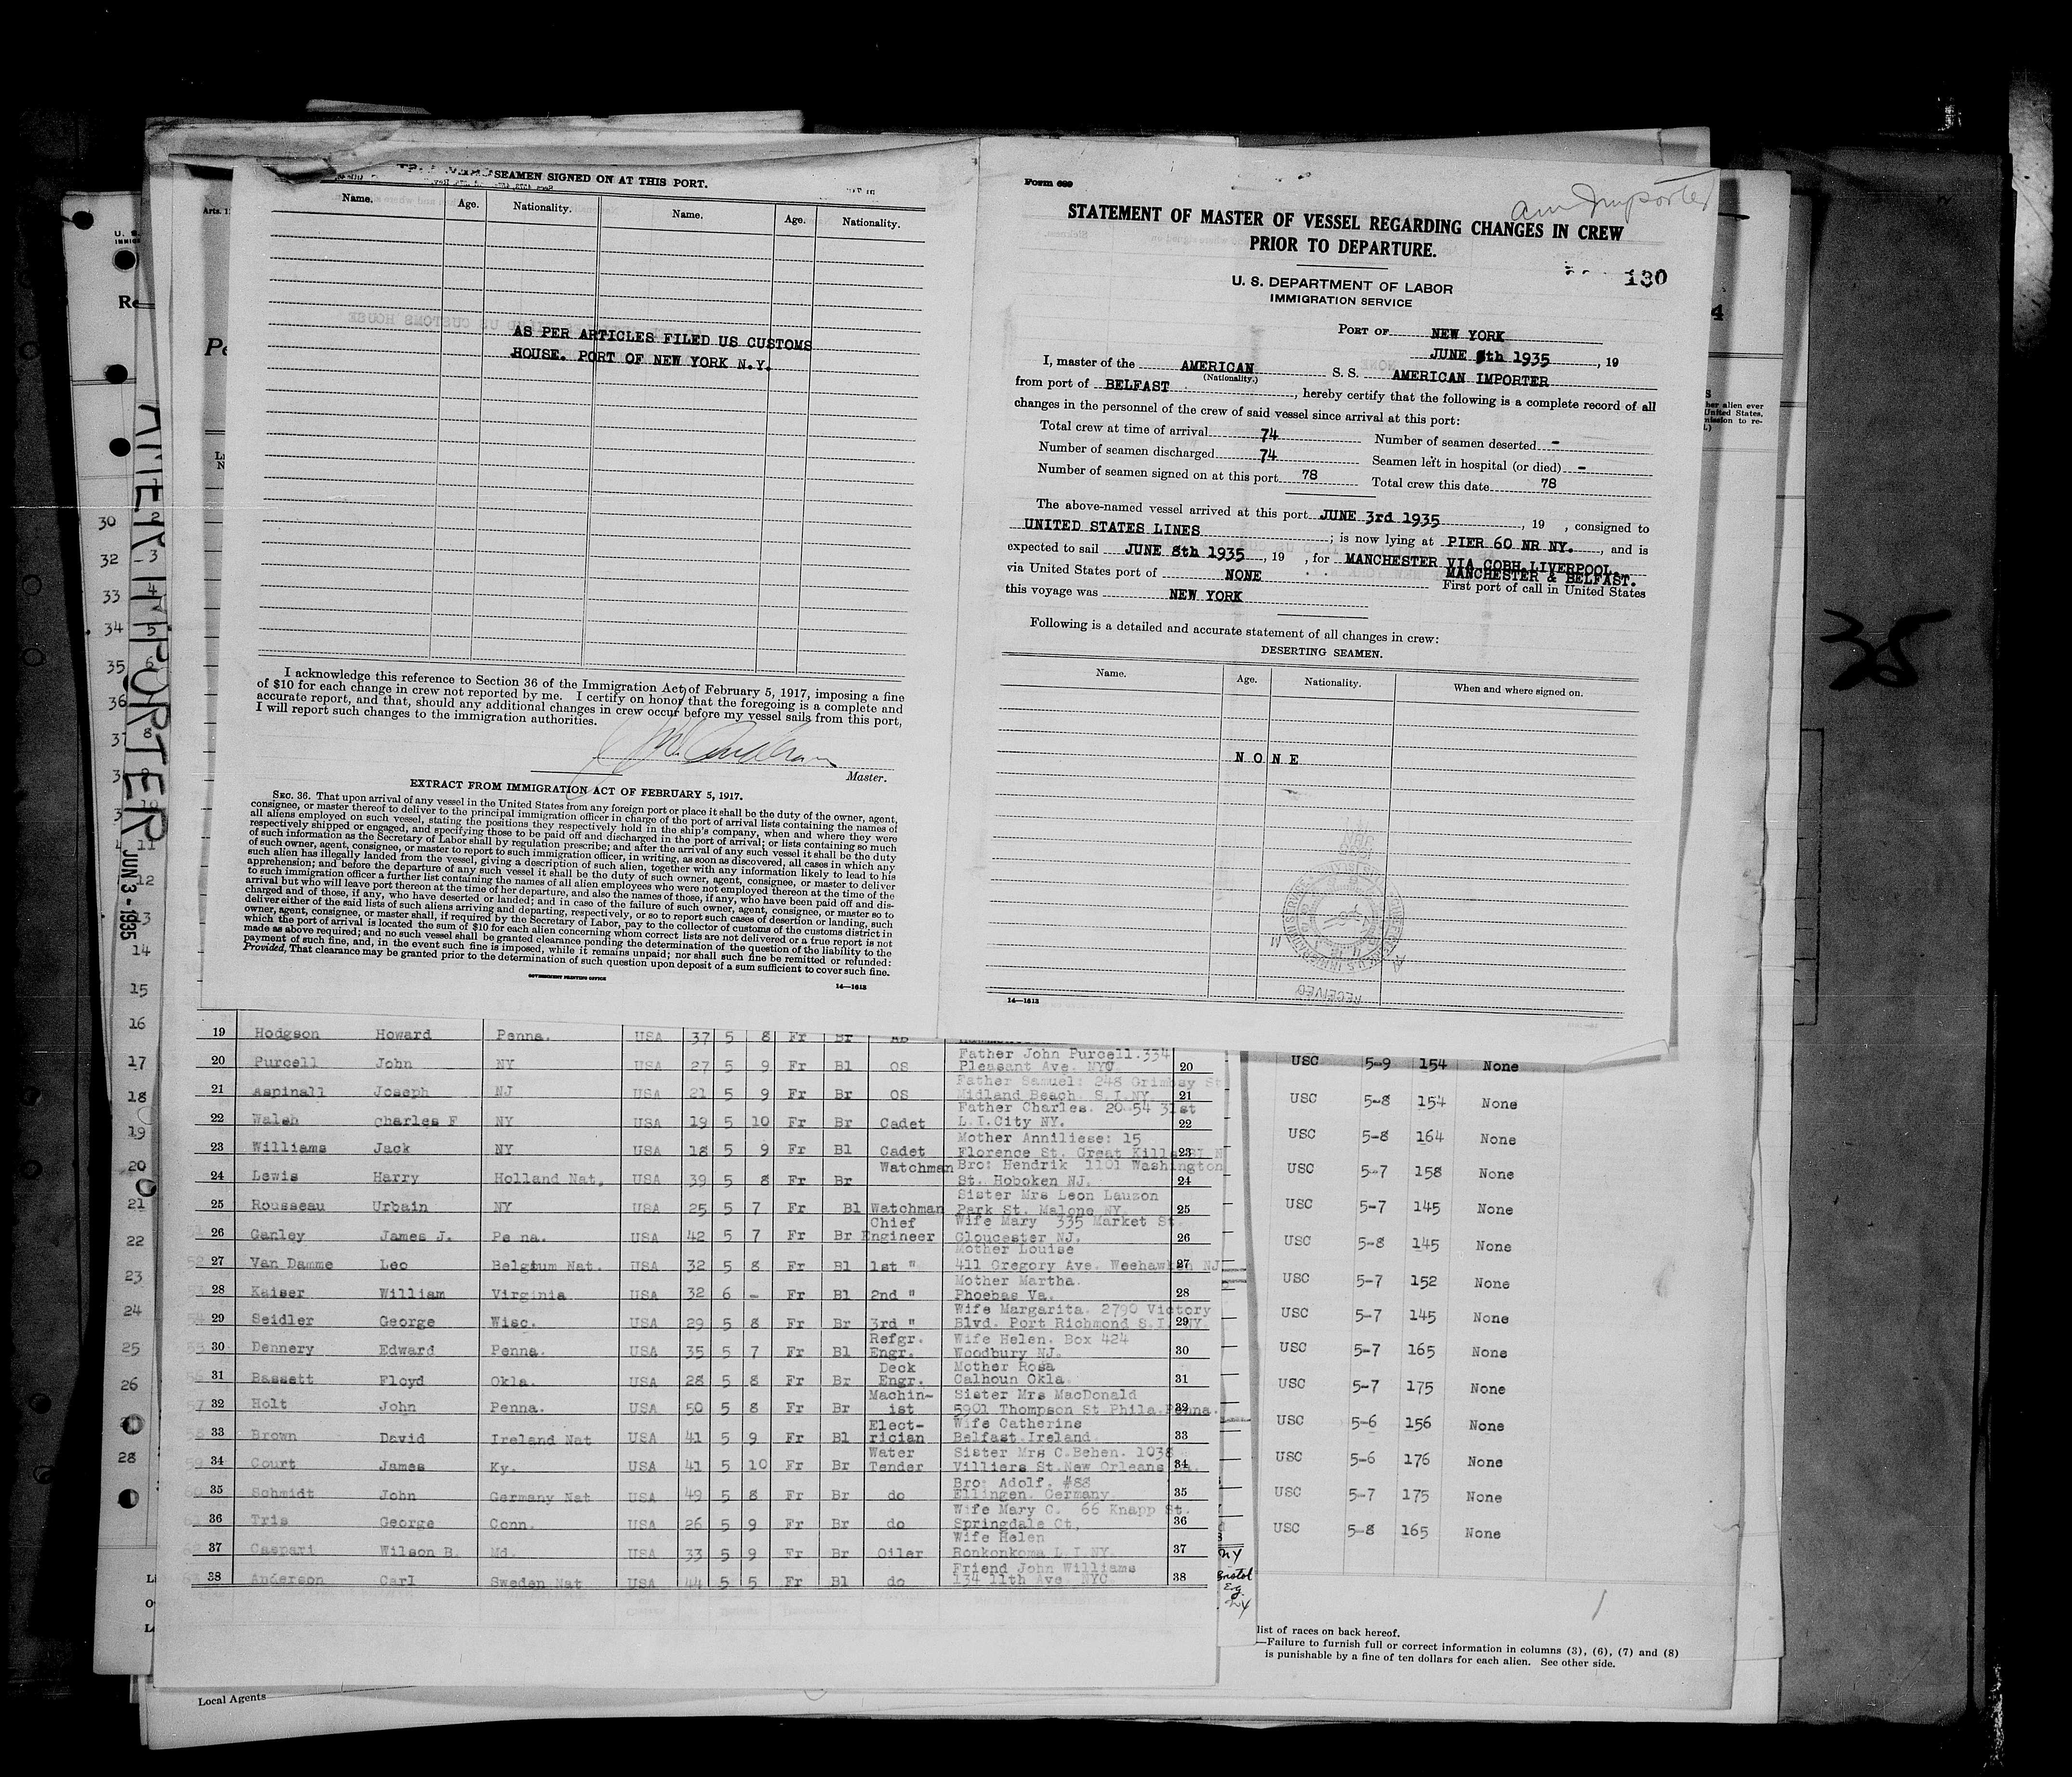 SEAMEN SIGNED ON AT THIS PORT.
Name. Age. Nationality. Name. Age. Nationality.
AS PER ARTICLES FILED US CUSTOMS
HOUSE. PORT OF NEW YORK N.Y.
I acknowledge this reference to Section 36 of the Immigration Act of February 5, 1917, imposing a fine
of $10 for each change in crew not reported by me. I certify on honor that the foregoing is a complete and
accurate report, and that, should any additional changes in crew occur before my vessel sails from this port,
I will report such changes to the immigration authorities.
Master.
EXTRACT FROM IMMIGRATION ACT OF FEBRUARY 5, 1917.
SEC. 36. That upon arrival of any vessel in the United States from any foreign port or place it shall be the duty of the owner, agent,
consignee, or master thereof to deliver to the principal immigration officer in charge of the port of arrival lists containing the names of
all aliens employed on such vessel, stating the positions they respectively hold in the ship's company, when and where they were
respectively shipped or engaged, and specifying those to be paid off and discharged in the port of arrival; or lists containing so much
of such information as the Secretary of Labor shall by regulation prescribe; and after the arrival of any such vessel it shall be the duty
of such owner, agent, consignee, or master to report to such immigration officer, in writing, as soon as discovered, all cases in which any
such alien has illegally landed from the vessel, giving a description of such alien, together with any information likely to lead to his
apprehension; and before the departure of any such vessel it shall be the duty of such owner, agent, consignee, or master to deliver
to such immigration officer a further list containing the names of all alien employees who were not employed thereon at the time of the
arrival but who will leave port thereon at the time of her departure, and also the names of those, if any, who have been paid off and dis-
charged and of those, if any, who have deserted or landed; and in case of the failure of such owner, agent, consignee, or master so to
deliver either of the said lists of such aliens arriving and departing, respectively, or so to report such cases of desertion or landing, such
owner, agent, consignee, or master shall, if required by the Secretary of Labor, pay to the collector of customs of the customs district in
which the port of arrival is located the sum of $10 for each alien concerning whom correct lists are not delivered or a true report is not
made as above required; and no such vessel shall be granted clearance pending the determination of the question of the liability to the
payment of such fine, and, in the event such fine is imposed, while it remains unpaid; nor shall such fine be remitted or refunded:
Provided, That clearance may be granted prior to the determination of such question upon deposit of a sum sufficient to cover such fine.
GOVERNMENT PRINTING OFFICE
14—1613
Form 689
Am Importer
STATEMENT OF MASTER OF VESSEL REGARDING CHANGES IN CREW
PRIOR TO DEPARTURE.
130
U. S. DEPARTMENT OF LABOR
IMMIGRATION SERVICE
PORT OF NEW YORK
JUNE 8th 1935, 19
I, master of the AMERICAN S. S. AMERICAN IMPORTER
(Nationality.)
from port of BELFAST, hereby certify that the following is a complete record of all
changes in the personnel of the crew of said vessel since arrival at this port:
Total crew at time of arrival 74 Number of seamen deserted -
Number of seamen discharged 74 Seamen left in hospital (or died) -
Number of seamen signed on at this port 78 Total crew this date 78
The above-named vessel arrived at this port JUNE 3rd 1935, 19 , consigned to
UNITED STATES LINES; is now lying at PIER 60 NR NY., and is
expected to sail JUNE 8th 1935, 19 , for MANCHESTER VIA COBH.LIVERPOOL.
via United States port of NONE MANCHESTER & BELFAST.
First port of call in United States
this voyage was NEW YORK
Following is a detailed and accurate statement of all changes in crew:
DESERTING SEAMEN.
Name. Age. Nationality. When and where signed on.
NONE
RECEIVED
14—1613
AMER IMPORTER
JUN 3 - 1935
35
19 Hodgson Howard Penna. USA 37 5 8 Fr Br AB
20 Purcell John NY USA 27 5 9 Fr Bl OS Father John Purcell.334
Pleasant Ave. NYC. 20
21 Aspinall Joseph NJ USA 21 5 9 Fr Br OS Father Samuel: 248 Grimbsy St
Midland Beach. S.I.NY. 21
22 Walsh Charles F NY USA 19 5 10 Fr Br Cadet Father Charles. 20-54 31st
L.I.City NY. 22
23 Williams Jack NY USA 18 5 9 Fr Bl Cadet Mother Anniliese: 15
Florence St. Great Kills 23
24 Lewis Harry Holland Nat. USA 39 5 8 Fr Br Watchman Bro: Hendrik 1101 Washington
St. Hoboken NJ. 24
25 Rousseau Urbain NY USA 25 5 7 Fr Bl Watchman Sister Mrs Leon Lauzon
Park St. Malone NY. 25
26 Ganley James J. Pe na. USA 42 5 7 Fr Br Chief Engineer Wife Mary 335 Market St.
Gloucester NJ. 26
27 Van Damme Leo Belgium Nat. USA 32 5 8 Fr Bl 1st " Mother Louise
411 Gregory Ave. Weehawken NJ 27
28 Kaiser William Virginia USA 32 6 - Fr Bl 2nd " Mother Martha.
Phoebas Va. 28
29 Seidler George Wisc. USA 29 5 8 Fr Br 3rd " Wife Margarita. 2790 Victory
Blvd. Port Richmond S.I. NY. 29
30 Dennery Edward Penna. USA 35 5 7 Fr Bl Refgr. Engr. Wife Helen. Box 424
Woodbury NJ. 30
31 Bassett Floyd Okla. USA 28 5 8 Fr Br Deck Engr. Mother Rosa
Calhoun Okla. 31
32 Holt John Penna. USA 50 5 8 Fr Br Machin-ist Sister Mrs MacDonald
5901 Thompson St Phila.Penna. 32
33 Brown David Ireland Nat USA 41 5 9 Fr Bl Elect-rician Wife Catherine
Belfast.Ireland. 33
34 Court James Ky. USA 41 5 10 Fr Br Water Tender Sister Mrs C.Behen. 1038
Villiers St.New Orleans La. 34
35 Schmidt John Germany Nat USA 49 5 8 Fr Br do Bro: Adolf. #88
Ellingen. Germany. 35
36 Tris George Conn. USA 26 5 9 Fr Br do Wife Mary C. 66 Knapp St.
Springdale Ct. 36
37 Caspari Wilson B. Md. USA 33 5 9 Fr Br Oiler Wife Helen
Ronkonkoma L.I.NY. 37
38 Anderson Carl Sweden Nat USA 44 5 5 Fr Bl do Friend John Williams
134 11th Ave. NYC. 38
USC 5-9 154 None
USC 5-8 154 None
USC 5-8 164 None
USC 5-7 158 None
USC 5-7 145 None
USC 5-8 145 None
USC 5-7 152 None
USC 5-7 145 None
USC 5-7 165 None
USC 5-7 175 None
USC 5-6 156 None
USC 5-6 176 None
USC 5-7 175 None
USC 5-8 165 None
NY
Bristol
Eng.
NY
list of races on back hereof.
—Failure to furnish full or correct information in columns (3), (6), (7) and (8)
is punishable by a fine of ten dollars for each alien. See other side.
Local Agents